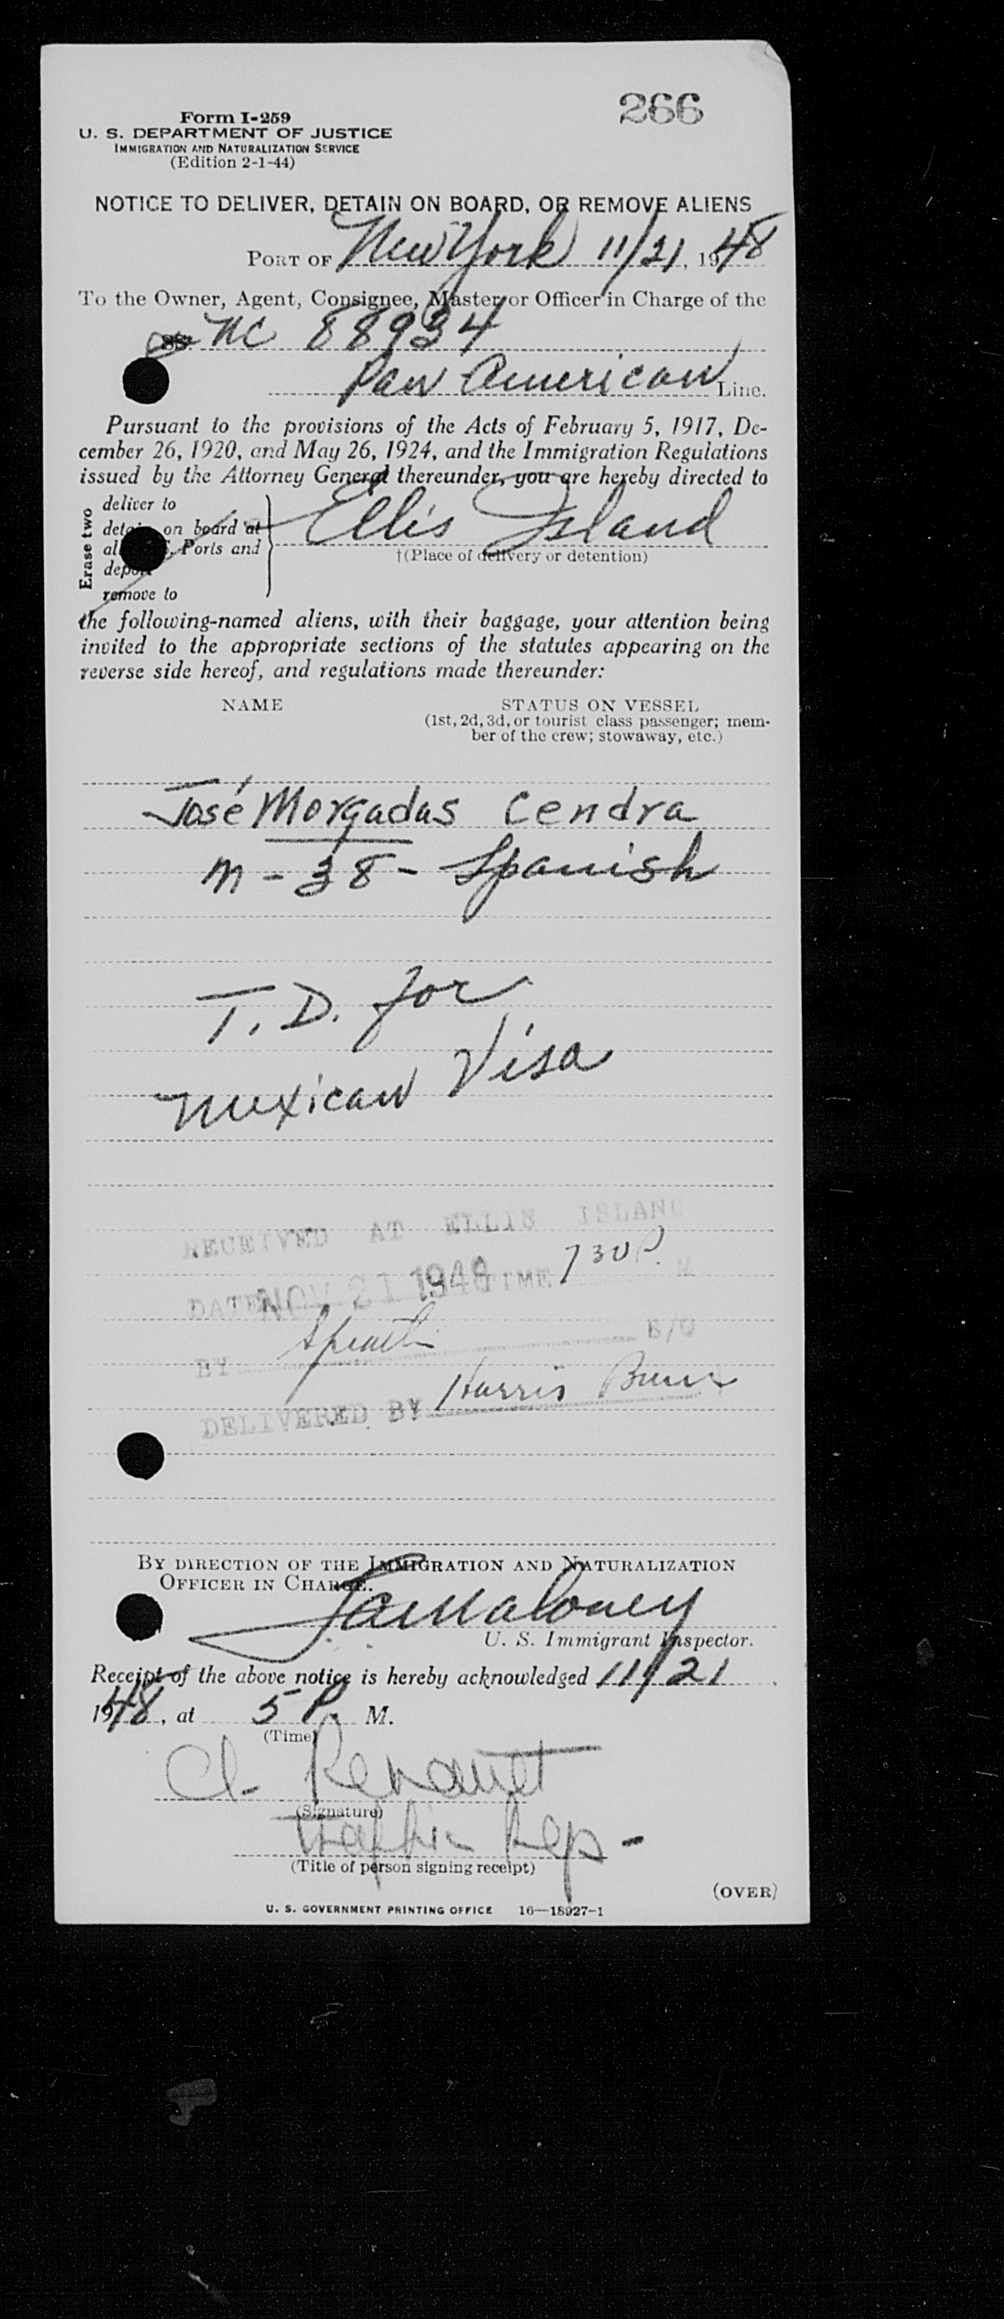 266
Form I-259
U. S. DEPARTMENT OF JUSTICE
IMMIGRATION AND NATURALIZATION SERVICE
(Edition 2-1-44)
NOTICE TO DELIVER, DETAIN ON BOARD, OR REMOVE ALIENS
PORT OF New York 11/21, 1948
To the Owner, Agent, Consignee, Master or Officer in Charge of the
SS NC 88934
Pan American Line.
Pursuant to the provisions of the Acts of February 5, 1917, De-
cember 26, 1920, and May 26, 1924, and the Immigration Regulations
issued by the Attorney General thereunder, you are hereby directed to
Erase two
deliver to
detain on board at
Ports and
deport
remove to
Ellis Island
†(Place of delivery or detention)
the following-named aliens, with their baggage, your attention being
invited to the appropriate sections of the statutes appearing on the
reverse side hereof, and regulations made thereunder:
NAME STATUS ON VESSEL
(1st, 2d, 3d, or tourist class passenger; mem-
ber of the crew; stowaway, etc.)
José Morgadas Cendra
M - 38 - Spanish
T. D. for
Mexican Visa
RECEIVED AT ELLIS ISLAND
DATE NOV 21 1948 TIME 730 P. M
BY B/O
DELIVERED BY Harris
BY DIRECTION OF THE IMMIGRATION AND NATURALIZATION
OFFICER IN CHARGE.
Maloney
U. S. Immigrant Inspector.
Receipt of the above notice is hereby acknowledged 11/21,
1948, at 5 P. M.
(Time)
(Signature)
Traffic Rep -
(Title of person signing receipt)
(OVER)
U. S. GOVERNMENT PRINTING OFFICE 16—18927-1